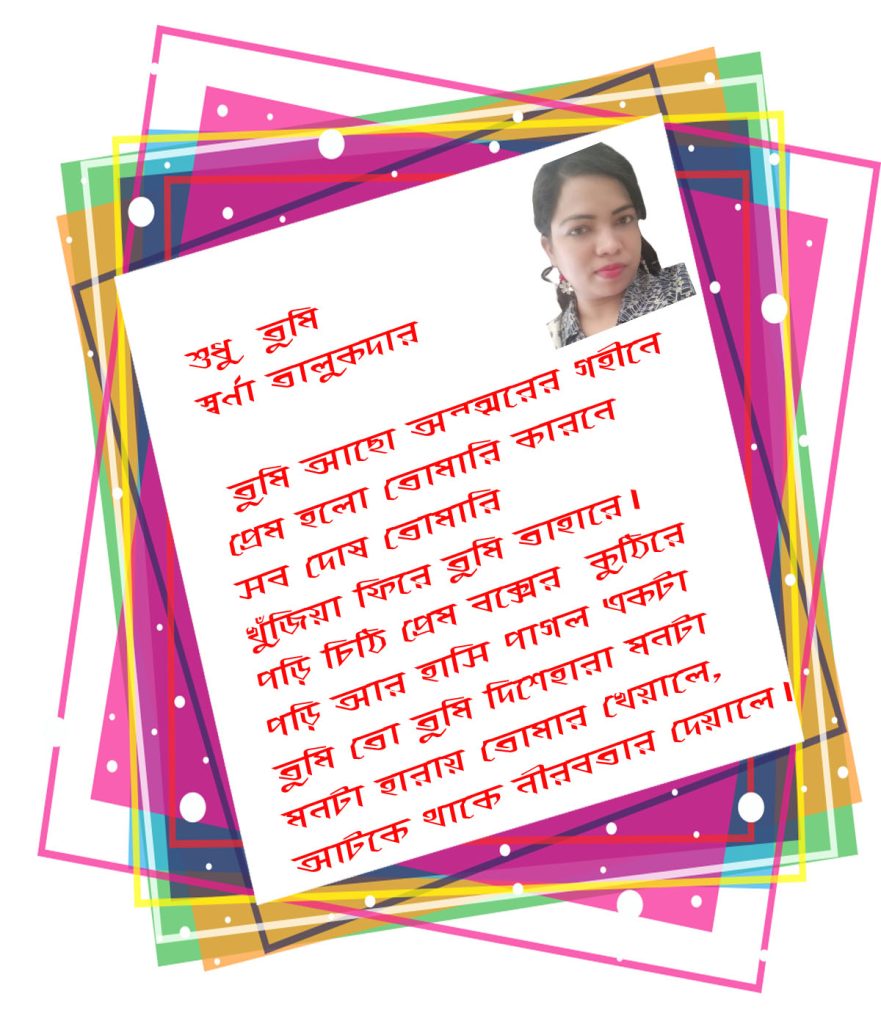 শুধু তুমি
স্বর্ণা তালুকদার
তুমি আছো অনন্তরের গহীনে
প্রেম হলো তোমারি কারনে
সব দোষ তোমারি
খুঁজিয়া ফিরে তুমি তাহারে।
পড়ি চিঠি প্রেম বক্সের কুঠিরে
পড়ি আর হাসি পাগল একটা
তুমি তো তুমি দিশেহারা মনটা
মনটা হারায় তোমার খেয়ালে,
আটকে থাকে নীরবতার দেয়ালে।